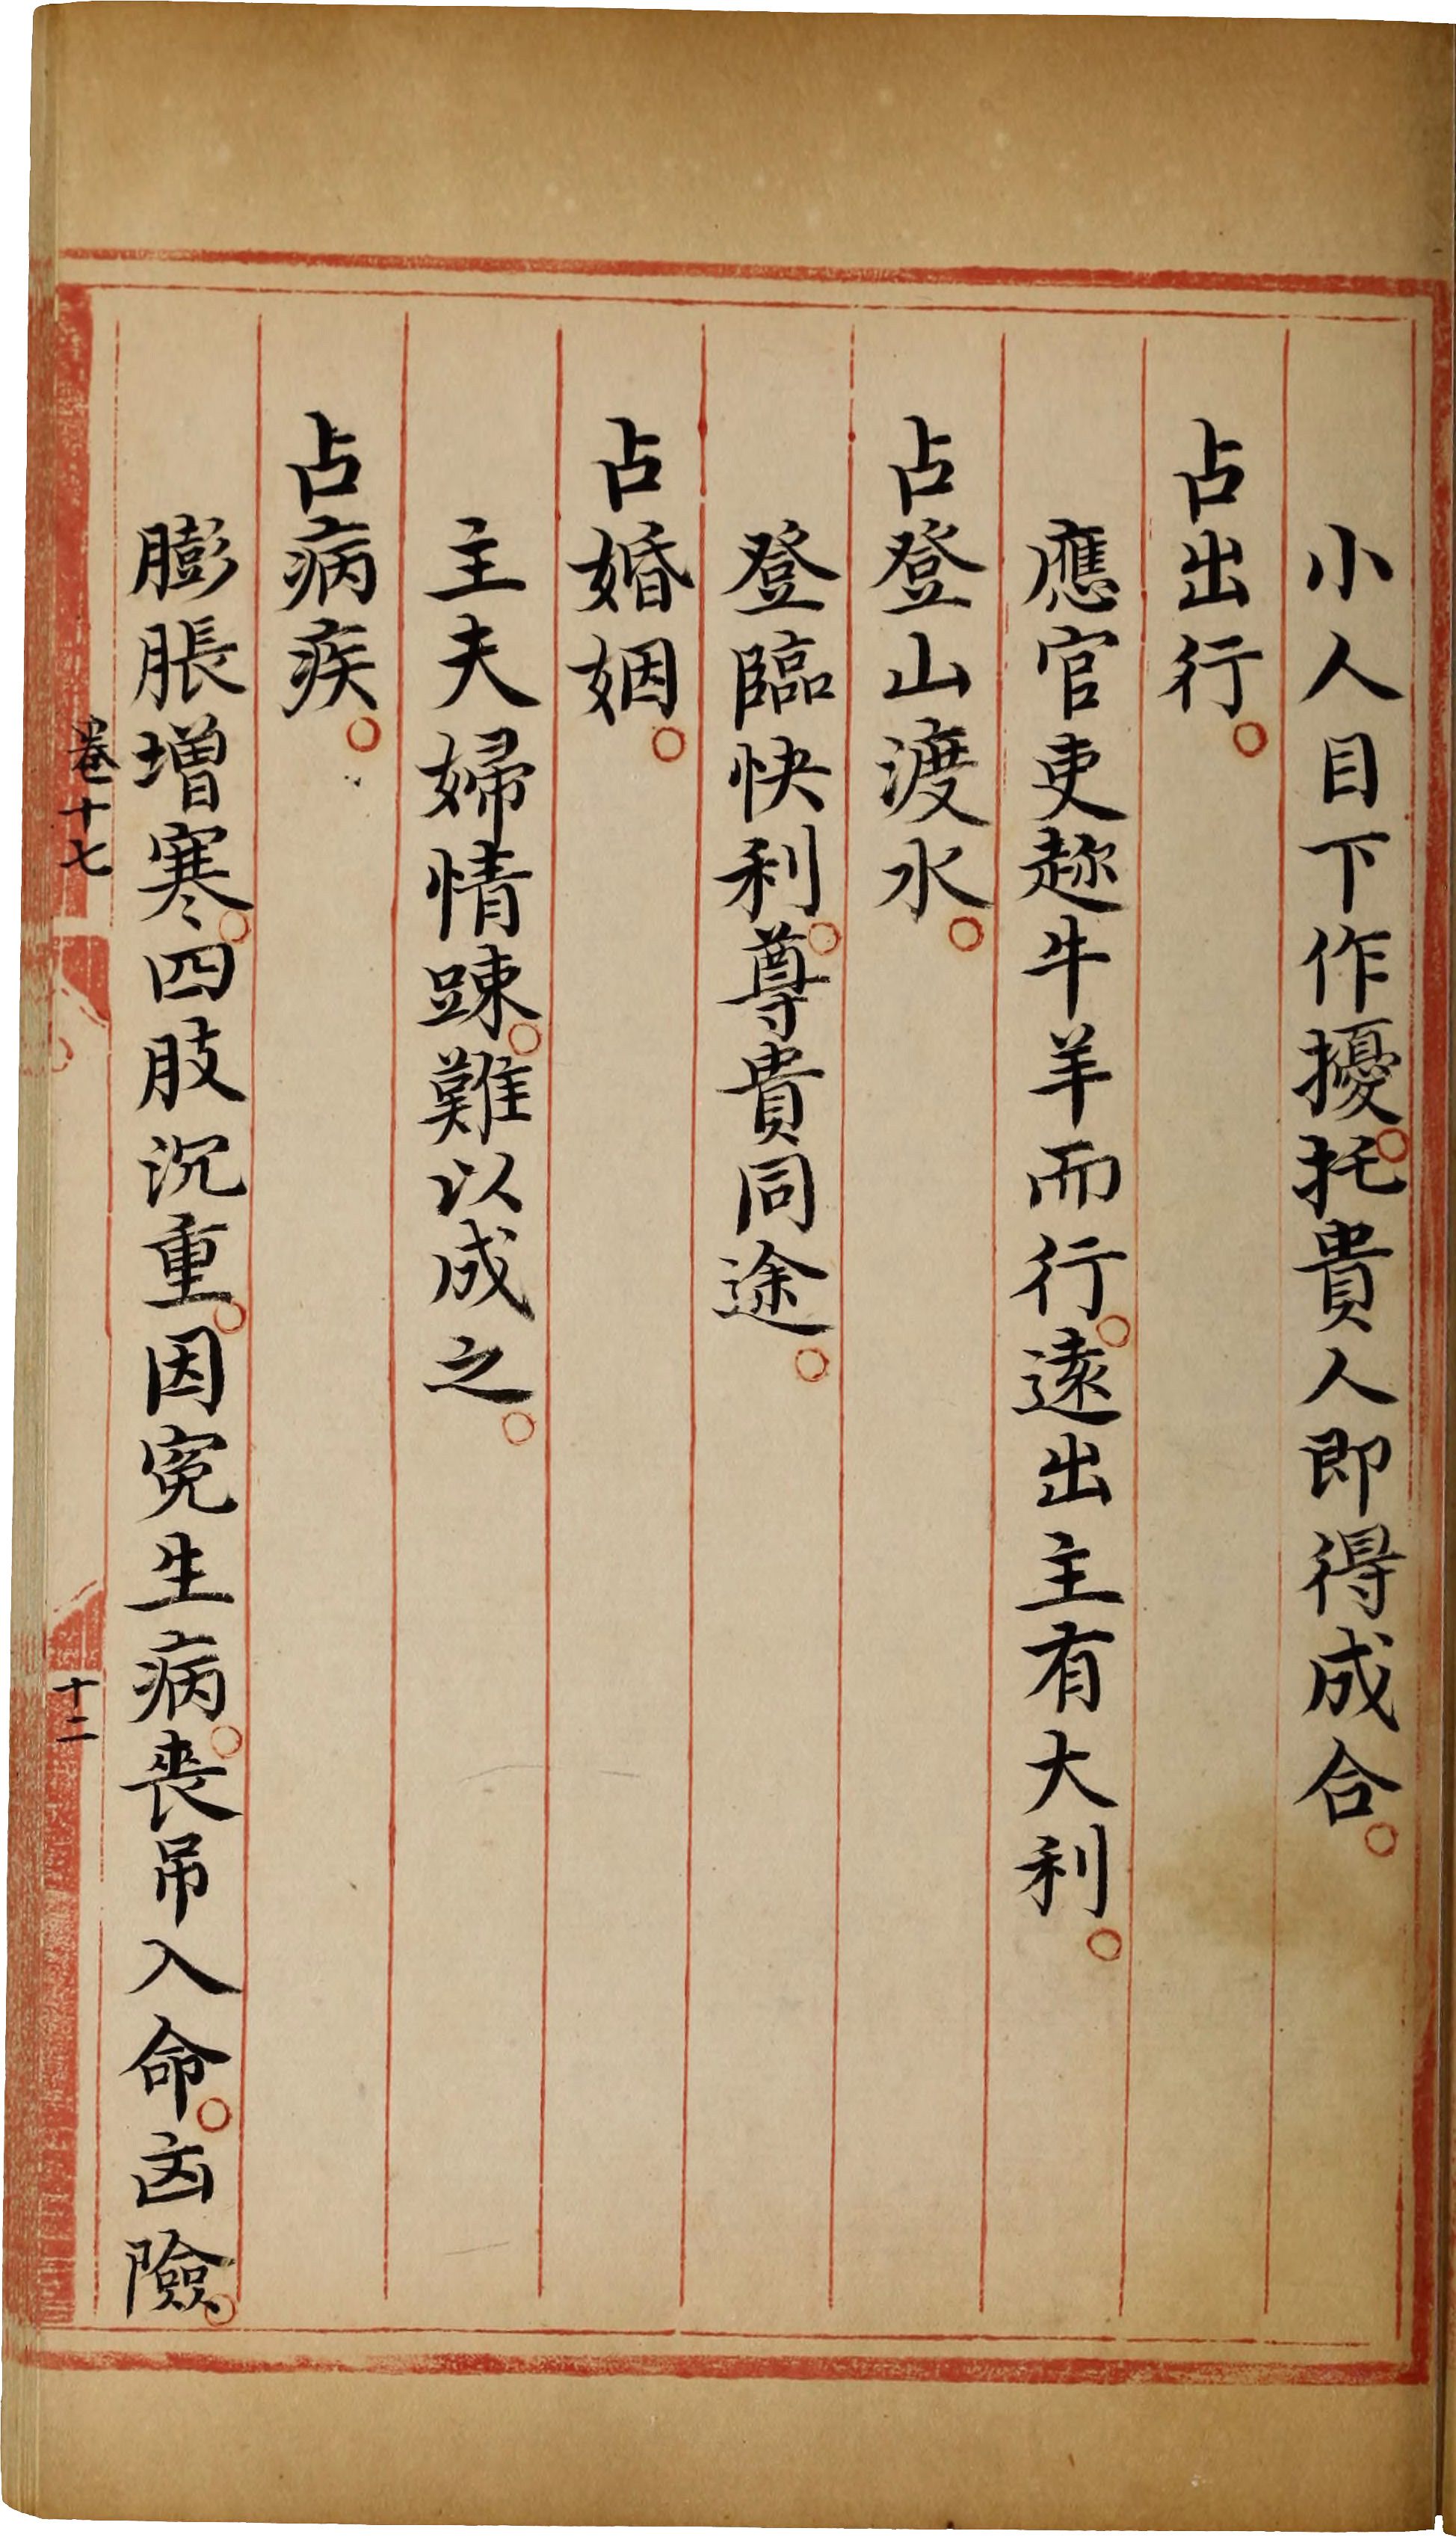 小人目下作擾。托貴人即得成合。
占出行。
應官吏趂牛羊而行。遠出主有大利。
占登山渡水。
登臨快利。尊貴同途。
占婚姻。
主夫婦情踈。難以成之。
占病疾。
膨脹增寒。四肢沉重。因寃生病。丧吊入命。凶險。
卷十七
十二